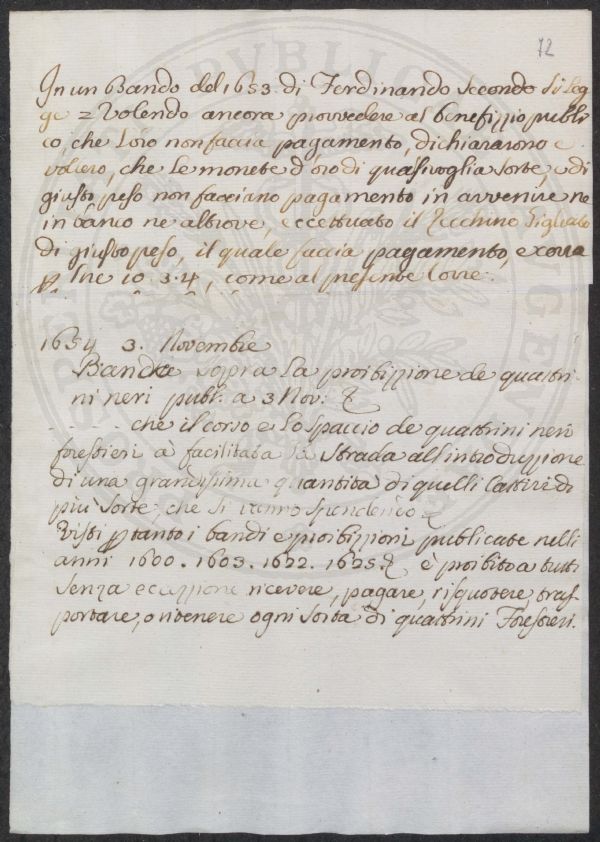 72
In un Bando del 1653. di Ferdinando Secondo Si leg
ge = Volendo ancora provvedere al benefizzio publi
co, che l'oro non faccia pagamento, dichiararono e
volsero, che le monete d'oro di qualsivoglia sorte, e di
giusto peso non facciano pagamento in avvenire ne
in banco ne altrove, eccettuato il Zecchino Gigliato
di giusto peso, il quale faccia pagamento, e corra
p. lire 10. 3. 4, come al presente Corre.
1654 3. Novembre
Bando sopra la proibizzione de quattri
ni neri publ. a 3 Nov:
che il corso e lo spaccio de quattrini neri
forestieri à facilitata la strada all'introduzzione
di una grandissima quantità di quelli Cattivi di
più sorte, che si vanno spendendo
Visti ptanto i bandi e proibizzioni publicate nelli
anni 1600. 1603. 1622. 1625. è proibito a tutti
senza eccezzione ricevere, pagare, risquotere, tras
portare, o ritenere ogni sorta di quattrini Forestieri.